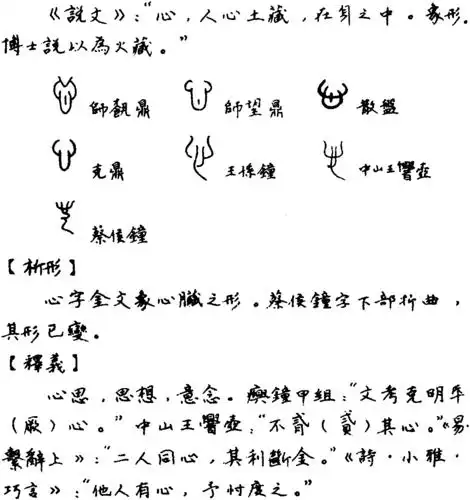 《說文》:“心,人心土藏,在身之中。象形.
博士說以為火藏。”
師𩛥鼎 師望鼎 散盤
克鼎 王孫鐘 中山王䰜壺
蔡侯鐘
【析形】
心字金文象心臟之形。蔡侯鐘字下部折曲,
其形已變。
【釋義】
心思,思想,意念。𤼈鐘甲組:“文考克明氒
(厥)心。”中山王壺:“不貳(貳)其心。”《易·
繫辭上》:“二人同心,其利斷金。”《詩·小雅·
巧言》:“他人有心,予忖度之。”